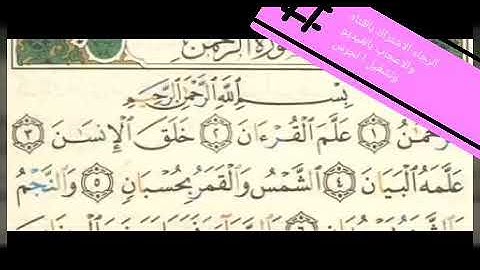 الرجاء الاشتراك بالقناة
والاعجاب بالفيديو
وتفعيل الجرس
سورة الرحمن
بِسْمِ اللَّهِ الرَّحْمَٰنِ الرَّحِيمِ
الرَّحْمَٰنُ ١ عَلَّمَ الْقُرْءَانَ ٢ خَلَقَ الْإِنسَٰنَ ٣
عَلَّمَهُ الْبَيَانَ ٤ الشَّمْسُ وَالْقَمَرُ بِحُسْبَانٍ ٥ وَالنَّجْمُ